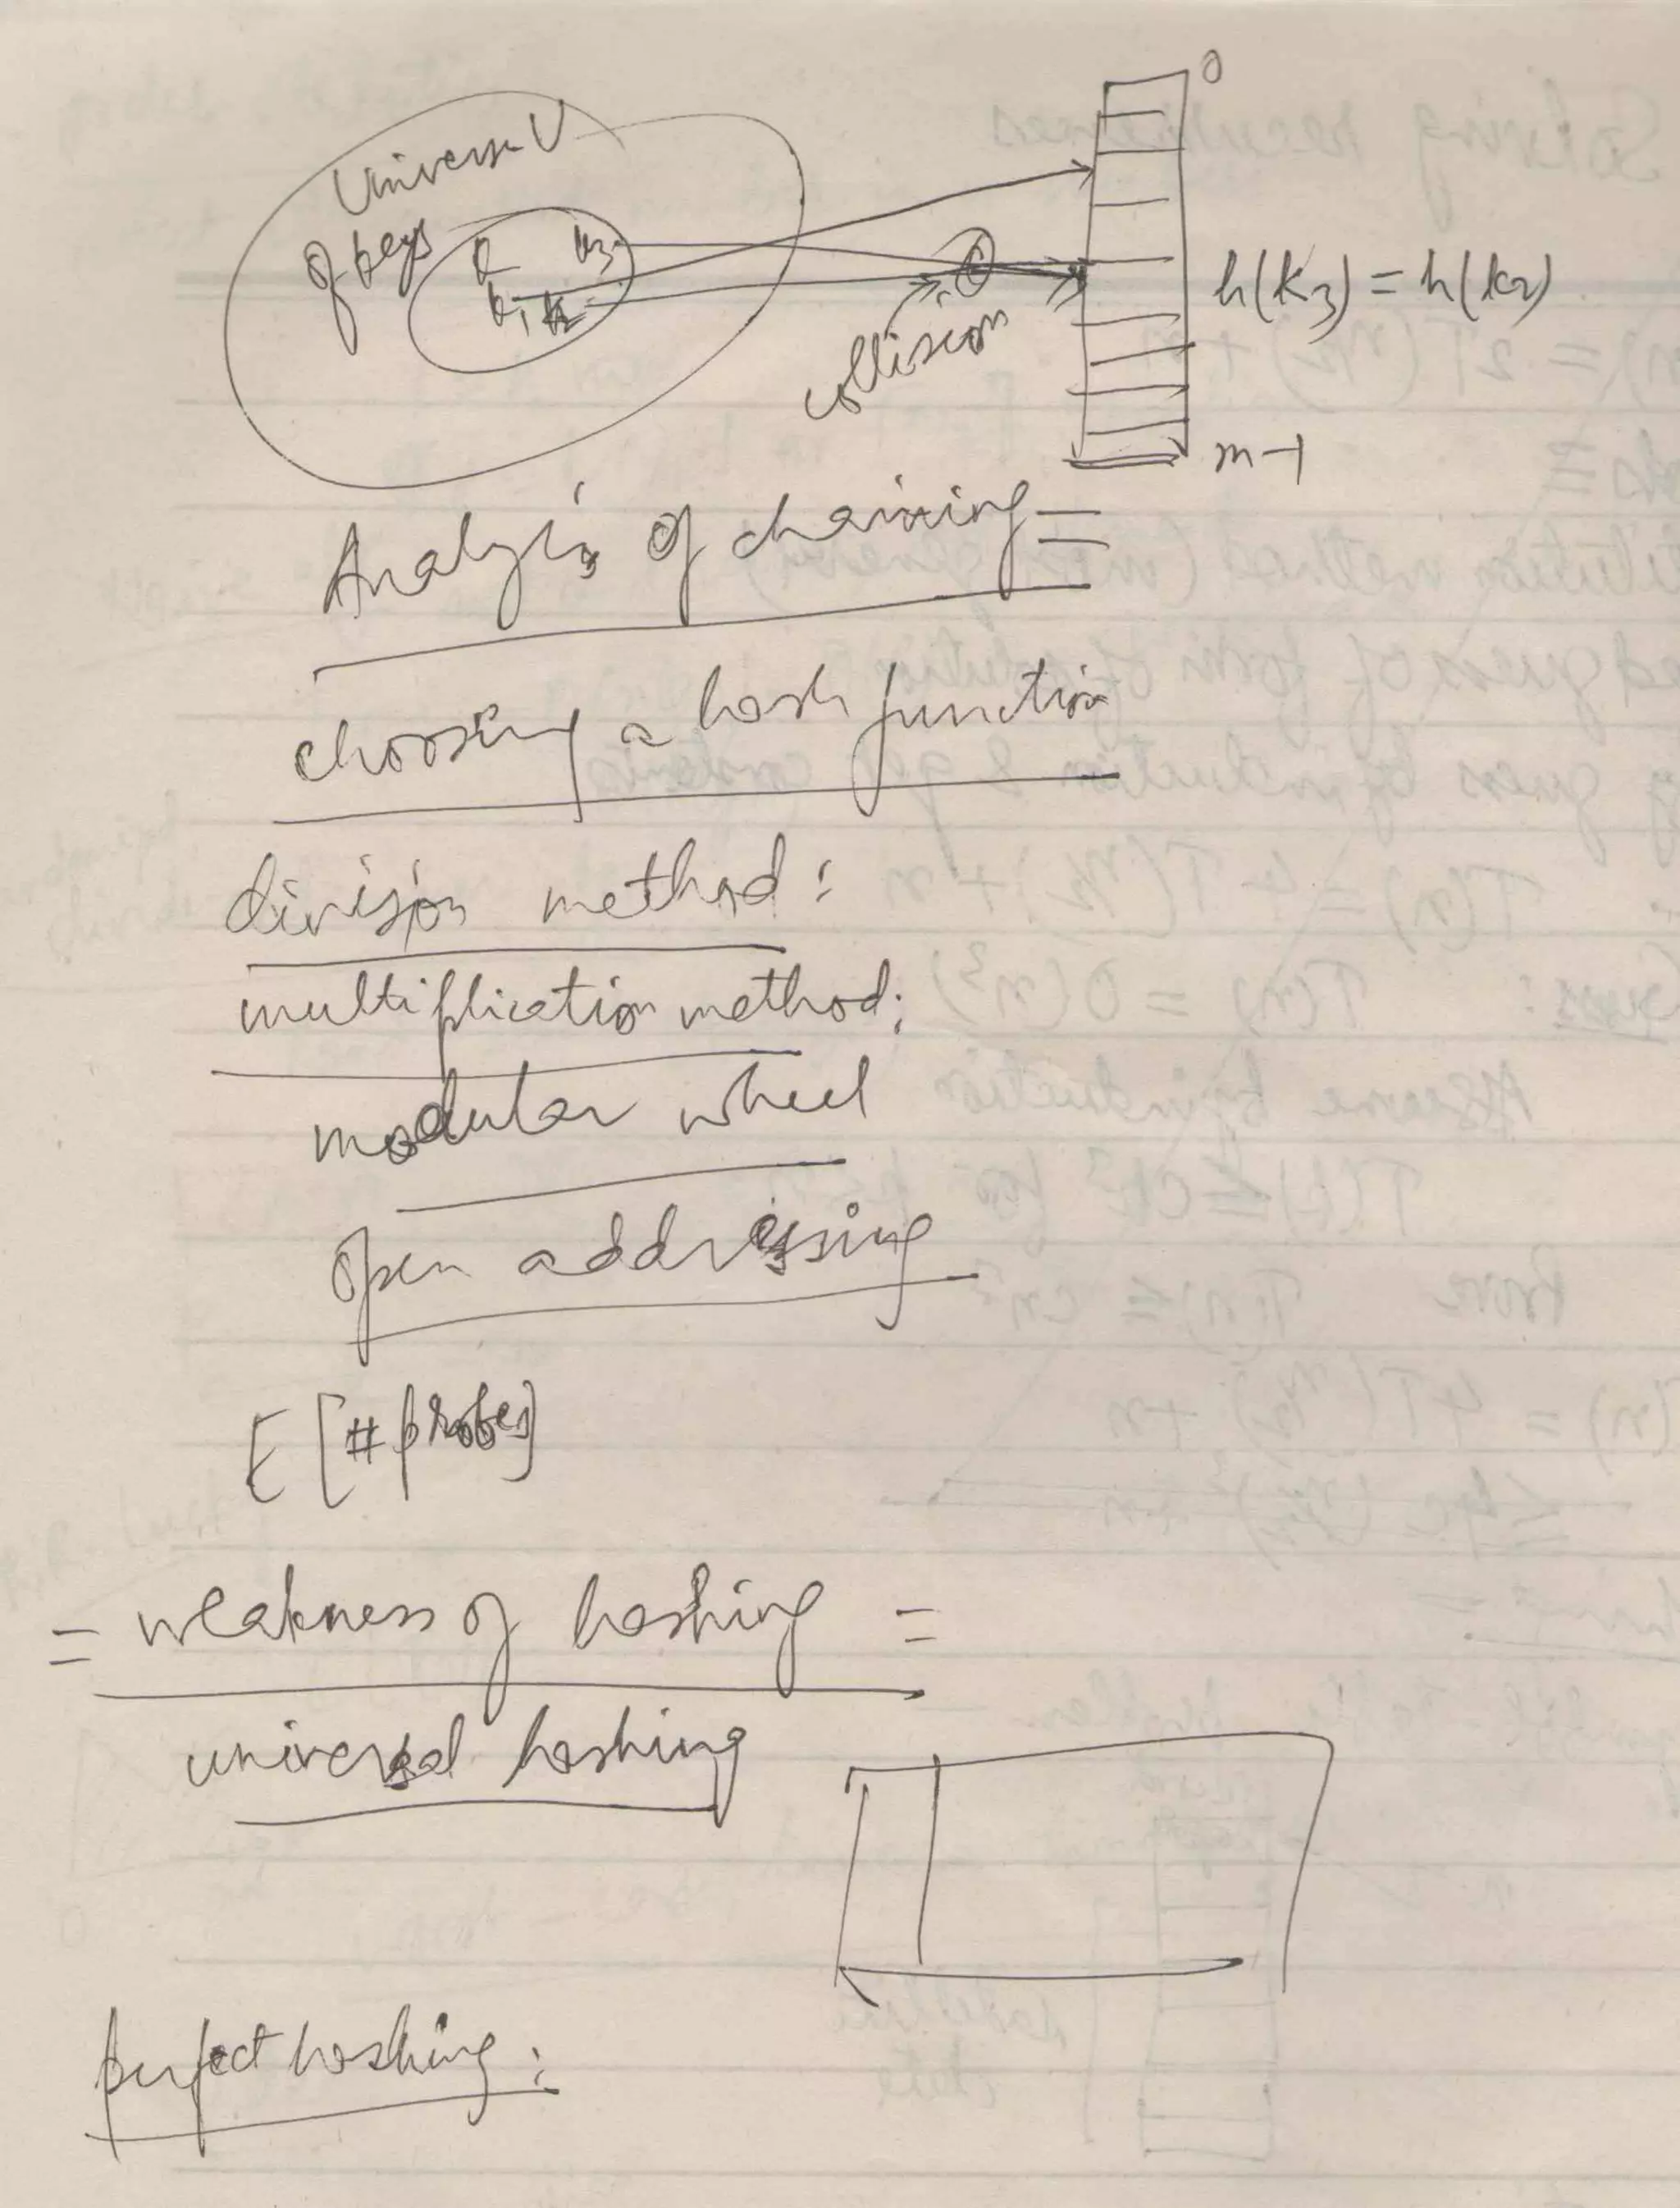 0
Universe U
of keys
k k3
k1 k2
h(k3) = h(k2)
collision
m-1
Analysis of chaining =
choosing a hash function
division method:
multiplication method:
modular wheel
open addressing
E [# probes]
= weakness of hashing =
universal hashing
perfect hashing: